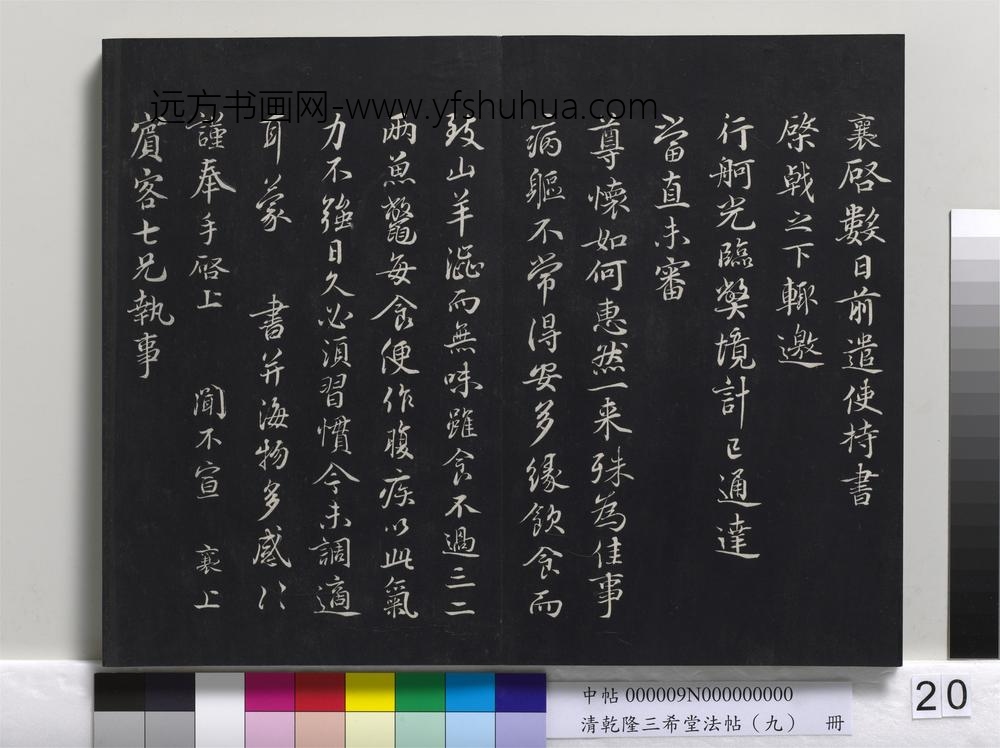 远方书画网-www.yfshuhua.com
襄啓數日前遣使持書
棨戟之下輙邀
行舸光臨弊境計已通達
當直未審
尊懷如何惠然一来殊為佳事
病軀不常得安多緣飲食而
致山羊澁而無味雖食不過三二
兩魚鱉每食便作腹疾以此氣
力不強日久必須習慣今未調適
耳蒙 書并海物多感〻
謹奉手啓上 聞不宣 襄上
賓客七兄執事
中帖 000009N000000000
清乾隆三希堂法帖（九） 冊
20